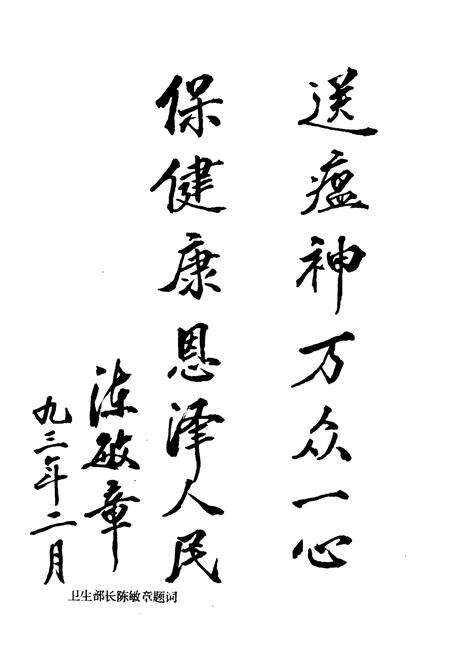 送瘟神万众一心
保健康恩泽人民
陈敏章
九三年二月
卫生部长陈敏章题词